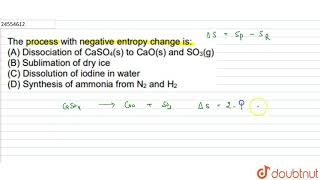 24554612
ΔS = Sp - SR
The process with negative entropy change is:
(A) Dissociation of CaSO₄(s) to CaO(s) and SO₃(g)
(B) Sublimation of dry ice
(C) Dissolution of iodine in water
(D) Synthesis of ammonia from N₂ and H₂
CaSO₄ → CaO + SO₃ ΔS = 2 -
doubtnut